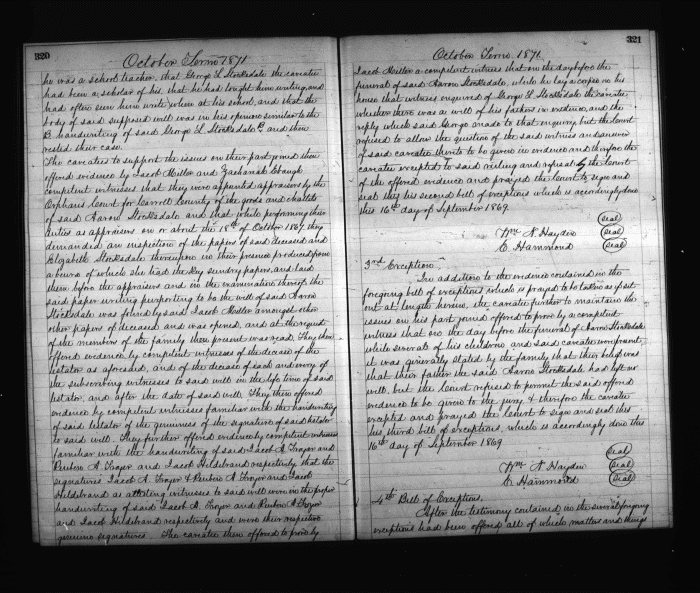 320
October Term 1871
he was a school teacher, that George L Stocksdale the caveatee
had been a scholar of his, that he had taught him writing, and
had often seen him write when at his school, and that the
body of said supposed will was in his opinion similar to the
handwriting of said George L Stocksdale and then
rested their case.
The caveatees to support the issues on their part joined then
offered evidence by Jacob Miller and Zachariah Ebaugh
competent witnesses that they were appointed appraisers by the
Orphans Court for Carroll County of the goods and chattels
of said Aaron Stocksdale and that while performing their
duties as appraisers on or about the 18th of October 1867, they
demanded an inspection of the papers of said deceased and
Elizabeth Stocksdale thereupon in their presence produced from
a beurau of which she had the key sundry papers, and laid
them before the appraisers and in the examination thereof the
said paper writing purporting to be the will of said Aaron
Stocksdale was found by said Jacob Miller amongst other
other papers of deceased and was opened, and at the request
of the member of the family then present was read. They then
offered evidence by competent witnesses of the decease of the
testator as aforesaid, and of the decease of each and every of
the subscribing witnesses to said will in the life time of said
testator, and after the date of said will. They then offered
evidence by competent witnesses familiar with the handwriting
of said testator of the genuiness of the signature of said testator
to said will. They further offered evidence by competent witnesses
familiar with the handwriting of said Jacob A. Froyer and
Reubin A. Froyer and Jacob Hildebrand respectively that the
signatures Jacob A. Froyer & Reubin A Froyer and Jacob
Hildebrand as attesting witnesses to said will were in the proper
handwriting of said Jacob A. Froyer and Reubin A Froyer
and Jacob Hildebrand respectively and were their respective
genuine signatures. The caveatee then offered to prove by
321
October Term, 1871.
Jacob Miller a competent witness that on the day before the
funeral of said Aaron Stocksdale, while he lay a corpse in his
house that witness enquired of George L Stocksdale the caveatee
whether there was a will of his fathers in existence, and the
reply which said George made to that enquiry, but the Court
refused to allow the question of the said witness and answer
of said caveatee thereto to be given in evidence and therefore the
caveatee excepted to said ruling and refusal by the Court
of the offered evidence and prayed the Court to sign and
seal this his second bill of exceptions which is accordingly done
this 16th day of September 1869.
Wm N. Hayden (Seal)
C. Hammond (Seal)
(Seal)
3rd Exception.
In addition to the evidence contained in the
foregoing bill of exceptions which is prayed to be taken as if set
out at length herein, the caveatee further to maintain the
issues on his part joined offered to prove by a competent
witness that on the day before the funeral of Aaron Stocksdale
while several of his children and said caveatee were present,
it was generally stated by the family that their belief was
that their father the said Aaron Stocksdale had left no
will, but the Court refused to permit the said offered
evidence to be given to the jury & therefore the caveatee
excepts and prayed the Court to sign and seal this
his third bill of exceptions, which is accordingly done this
16th day of September 1869
Wm N Hayden (Seal)
C Hammond (Seal)
(Seal)
4th Bill of Exceptions.
After the testimony contained in the several foregoing
exceptions had been offered all of which matters and things